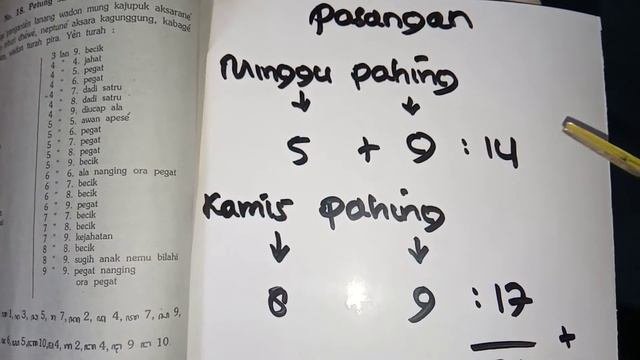 No. 18. Petung
lanang wadon mung kajupuk aksarané
dhéwé, neptuné aksara kagunggung, kabagé
turah pira. Yèn turah :
3 lan 9. becik
4 " 4. jahat
4 " 5. pegat
4 " 6. pegat
4 " 7. dadi satru
4 " 8. dadi satru
4 " 9. diucap ala
5 " 5. awan apesé
5 " 6. pegat
5 " 7. pegat
5 " 8. pegat
5 " 9. becik
6 " 6. ala nanging ora pegat
6 " 7. becik
6 " 8. becik
6 " 9. pegat
7 " 7. becik
7 " 8. becik
7 " 9. kejahatan
8 " 8. becik
8 " 9. sugih anak nemu bilahi
9 " 9. pegat nanging
ora pegat
Pasangan
Minggu pahing
↓ ↓
5 + 9 : 14
Kamis pahing
↓ ↓
8 9 : 17
+